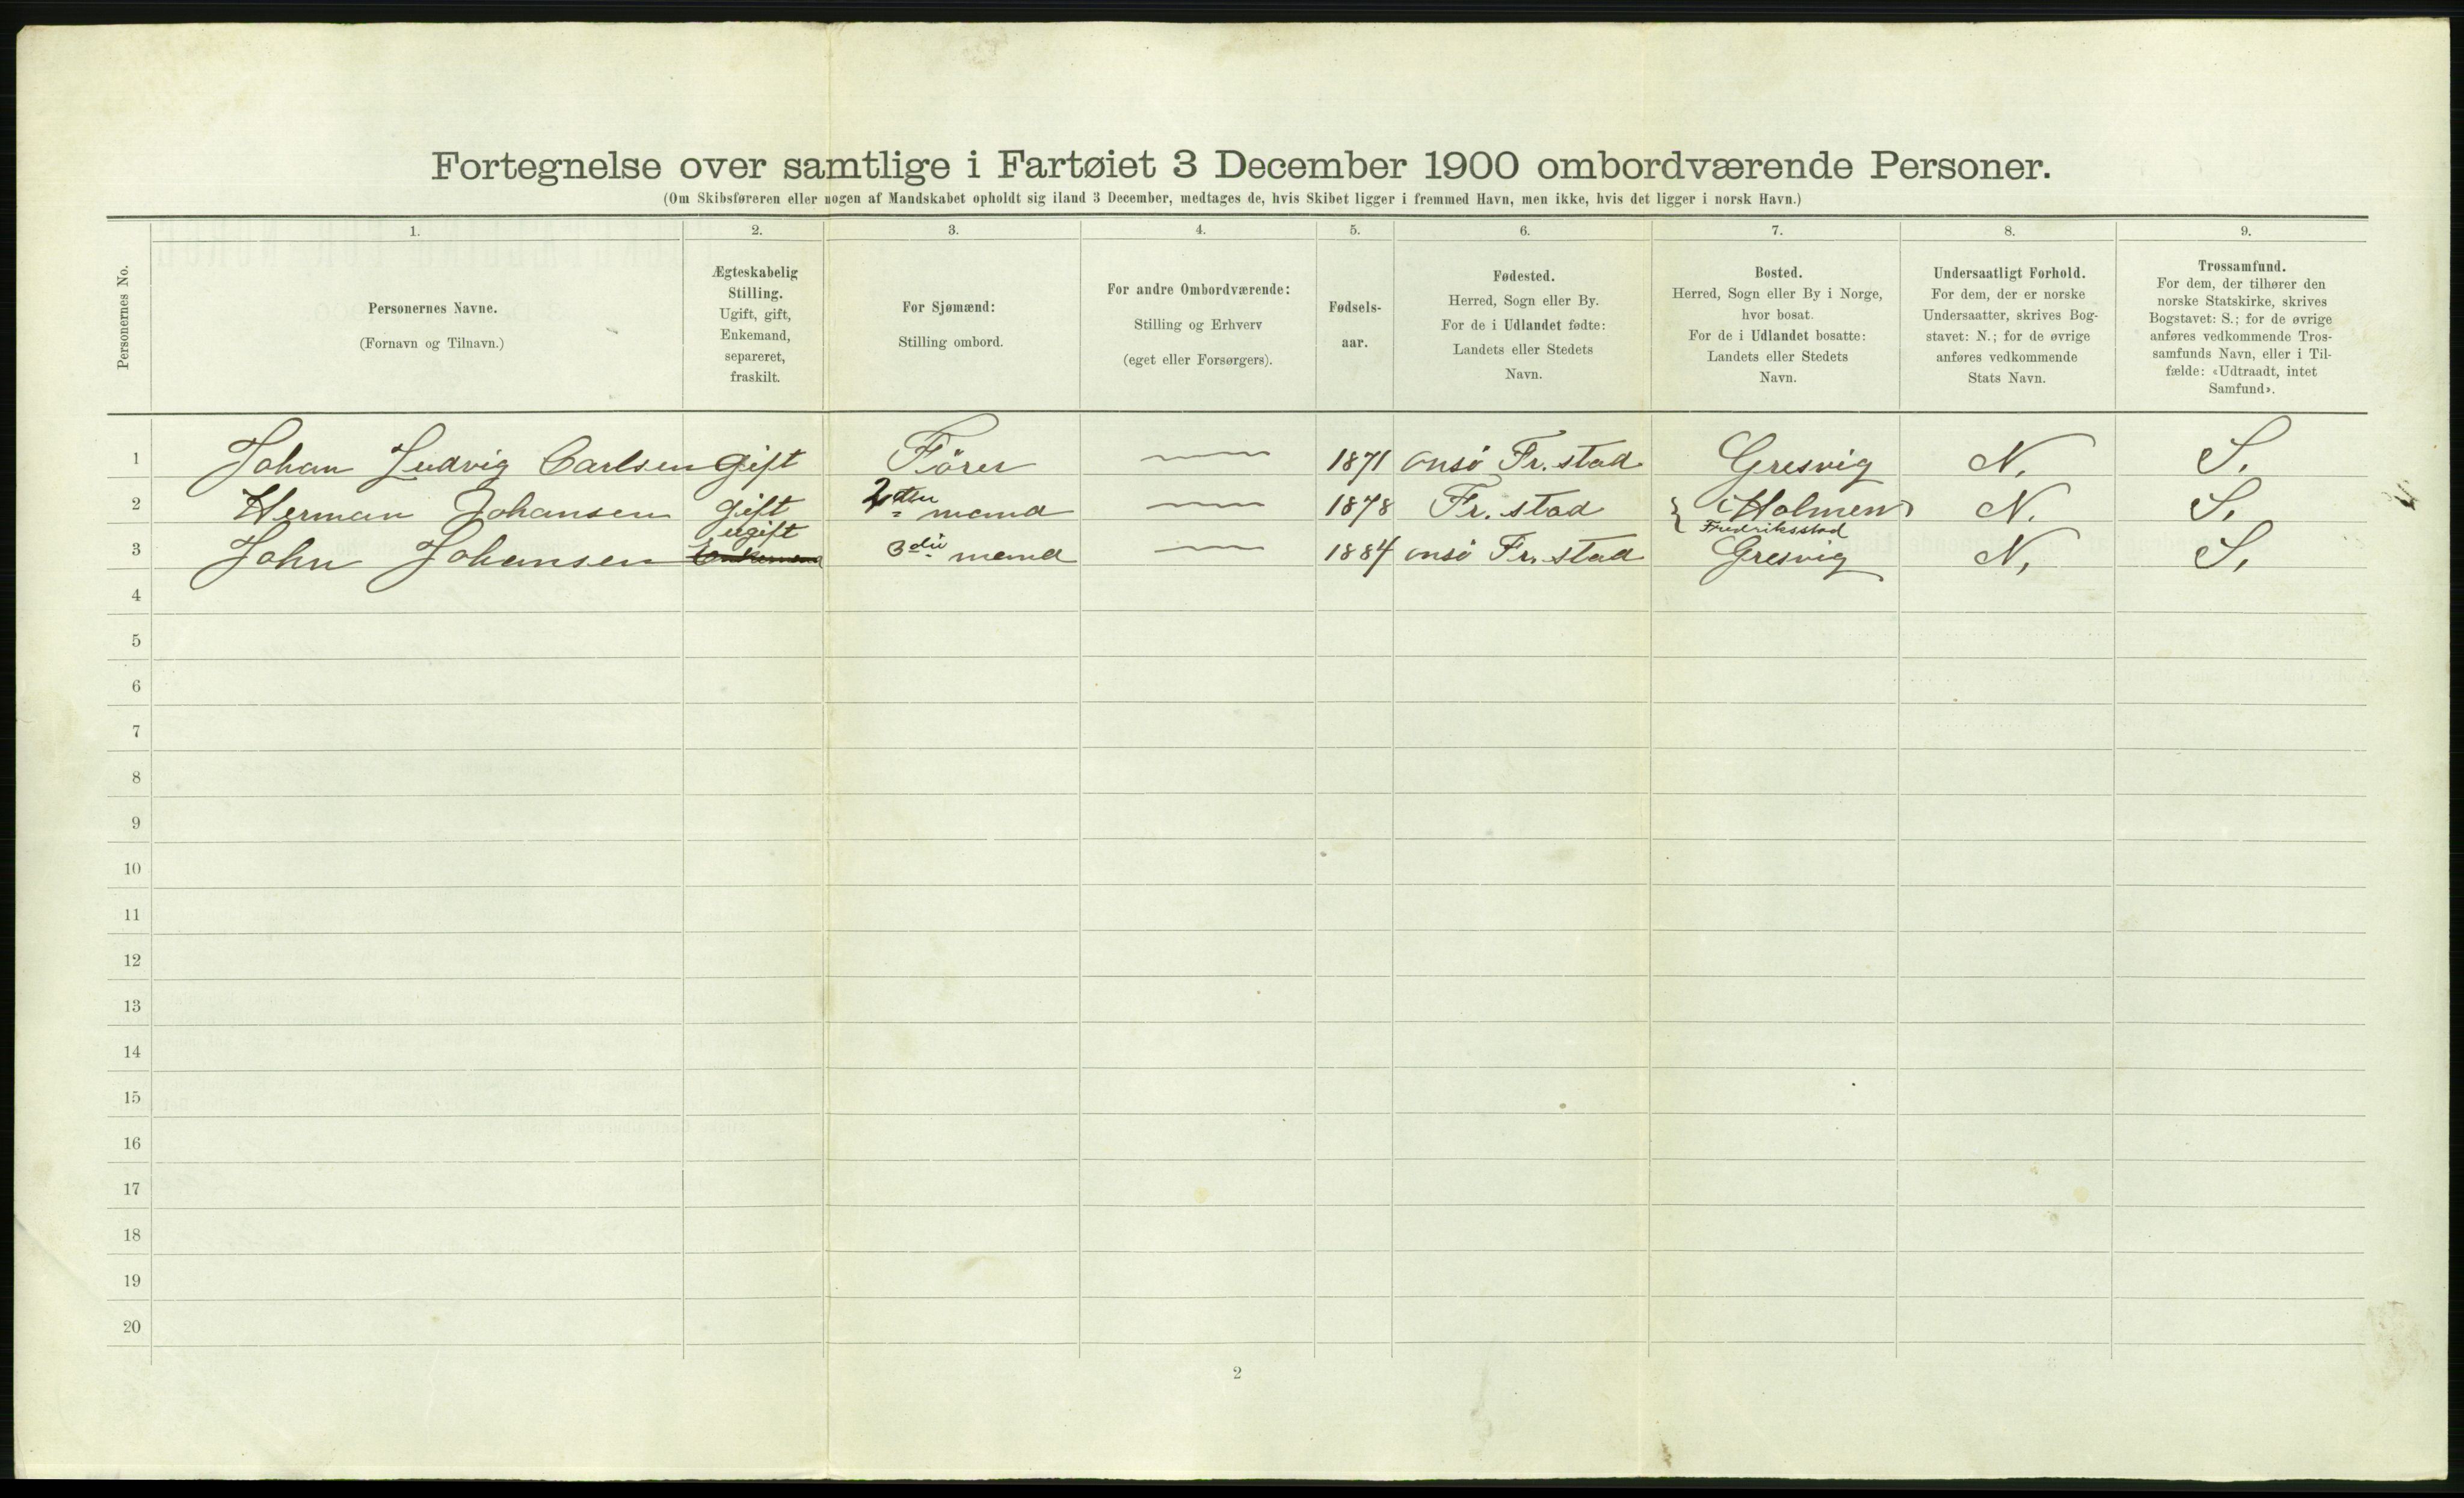 Fortegnelse over samtlige i Fartøiet 3 December 1900 ombordværende Personer.
(Om Skibsføreren eller nogen af Mandskabet opholdt sig iland 3 December, medtages de, hvis Skibet ligger i fremmed Havn, men ikke, hvis det ligger i norsk Havn.)
Personernes No.
1.
Personernes Navne.
(Fornavn og Tilnavn.)
2.
Ægteskabelig
Stilling.
Ugift, gift,
Enkemand,
separeret,
fraskilt.
3.
For Sjømænd:
Stilling ombord.
4.
For andre Ombordværende:
Stilling og Erhverv
(eget eller Forsørgers).
5.
Fødsels-
aar.
6.
Fødested.
Herred, Sogn eller By.
For de i Udlandet fødte:
Landets eller Stedets
Navn.
7.
Bosted.
Herred, Sogn eller By i Norge,
hvor bosat.
For de i Udlandet bosatte:
Landets eller Stedets
Navn.
8.
Undersaatligt Forhold.
For dem, der er norske
Undersaatter, skrives Bog-
stavet: N.; for de øvrige
anføres vedkommende
Stats Navn.
9.
Trossamfund.
For dem, der tilhører den
norske Statskirke, skrives
Bogstavet: S.; for de øvrige
anføres vedkommende Tros-
samfunds Navn, eller i Til-
fælde: «Udtraadt, intet
Samfund».
1 Johan Ludvig Carlsen gift Förer — 1871 onsö Fr. stad Gresvig N. S.
2 Herman Johansen gift 2den mand — 1878 Fr. stad Holmen N. S.
Fredriksstad
ugift
3 John Johansen Enkemand 3die mand — 1884 onsö Fr. stad Gresvig N, S,
4
5
6
7
8
9
10
11
12
13
14
15
16
17
18
19
20
2